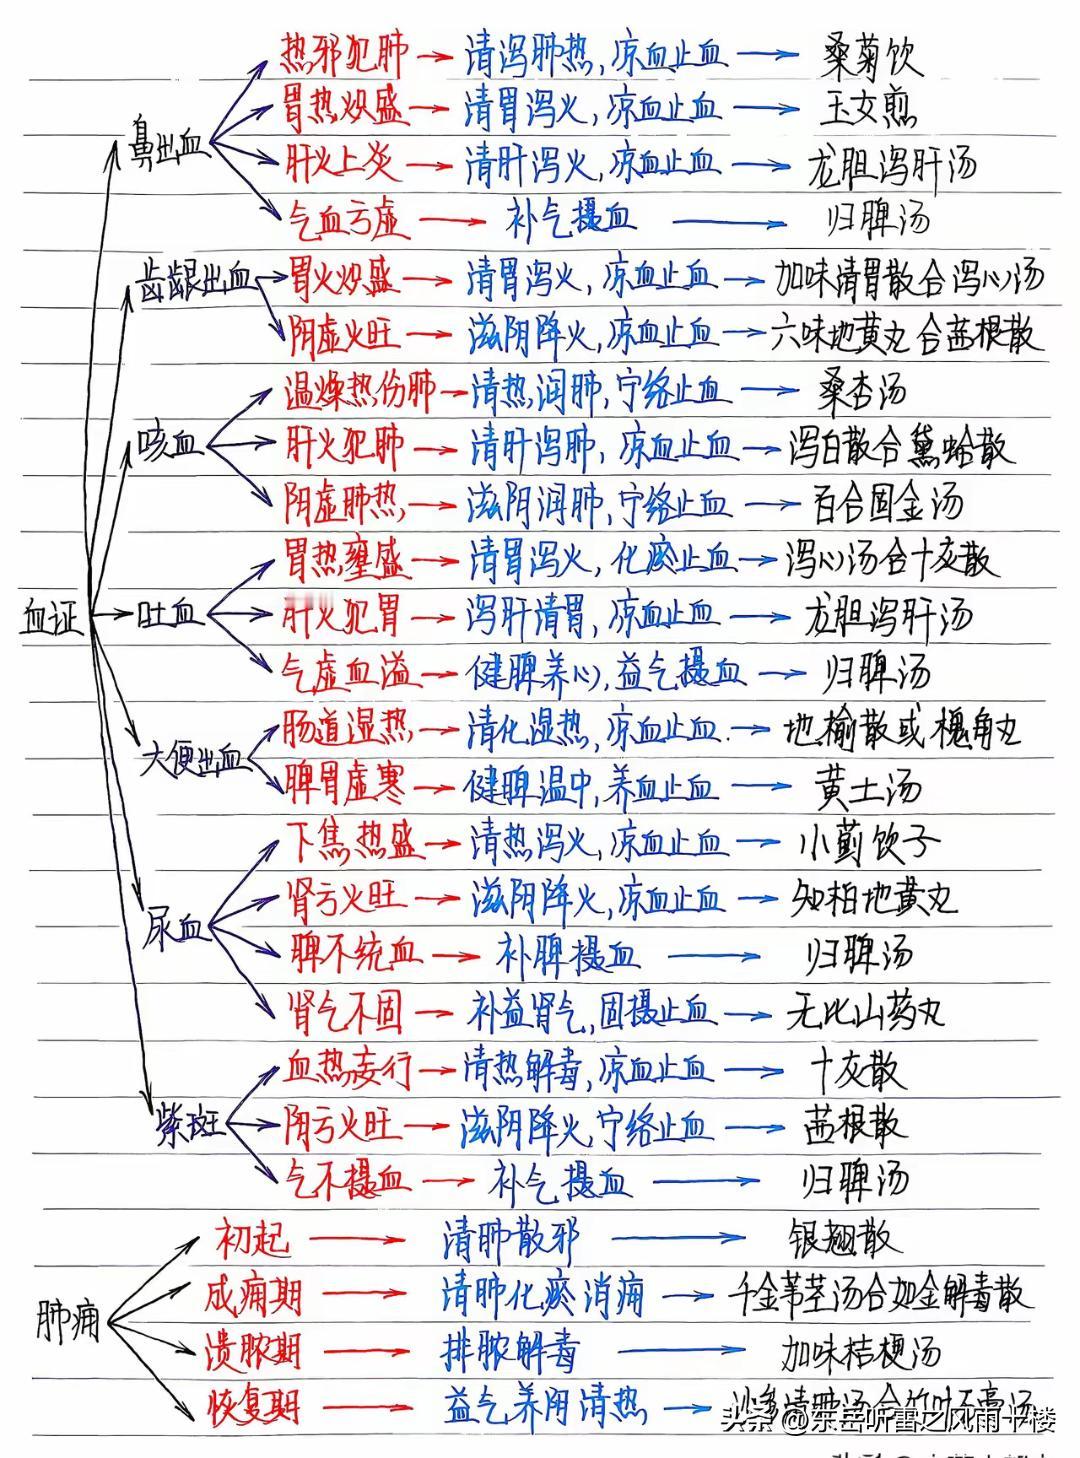 热邪犯肺→清泻肺热,凉血止血→桑菊饮
胃热炽盛→清胃泻火,凉血止血→玉女煎
鼻出血
肝火上炎→清肝泻火,凉血止血→龙胆泻肝汤
气血亏虚→补气摄血→归脾汤
齿龈出血 胃火炽盛→清胃泻火,凉血止血→加味清胃散合泻心汤
阴虚火旺→滋阴降火,凉血止血→六味地黄丸合茜根散
温燥热伤肺→清热润肺,宁络止血→桑杏汤
咳血 肝火犯肺→清肝泻肺,凉血止血→泻白散合黛蛤散
阴虚肺热→滋阴润肺,宁络止血→百合固金汤
胃热壅盛→清胃泻火,化瘀止血→泻心汤合十灰散
血证 吐血 肝火犯胃→泻肝清胃,凉血止血→龙胆泻肝汤
气虚血溢→健脾养心,益气摄血→归脾汤
肠道湿热→清化湿热,凉血止血→地榆散或槐角丸
大便出血
脾胃虚寒→健脾温中,养血止血→黄土汤
下焦热盛→清热泻火,凉血止血→小蓟饮子
肾亏火旺→滋阴降火,凉血止血→知柏地黄丸
尿血
脾不统血→补脾摄血→归脾汤
肾气不固→补益肾气,固摄止血→无比山药丸
血热妄行→清热解毒,凉血止血→十灰散
紫斑 阴亏火旺→滋阴降火,宁络止血→茜根散
气不摄血→补气摄血→归脾汤
初起→清肺散邪→银翘散
成痈期→清肺化瘀消痈→千金苇茎汤合如金解毒散
肺痈
溃脓期→排脓解毒→加味桔梗汤
恢复期→益气养阴清热→
头条 @东岳听雷之风雨十楼